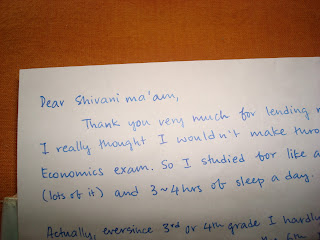 Dear Shivani ma'am,
Thank you very much for lending
I really thought I wouldn't make
Economics exam. So I studied for like
(lots of it) and 3~4hrs of sleep a day.
Actually, eversince 3rd or 4th grade I hardly